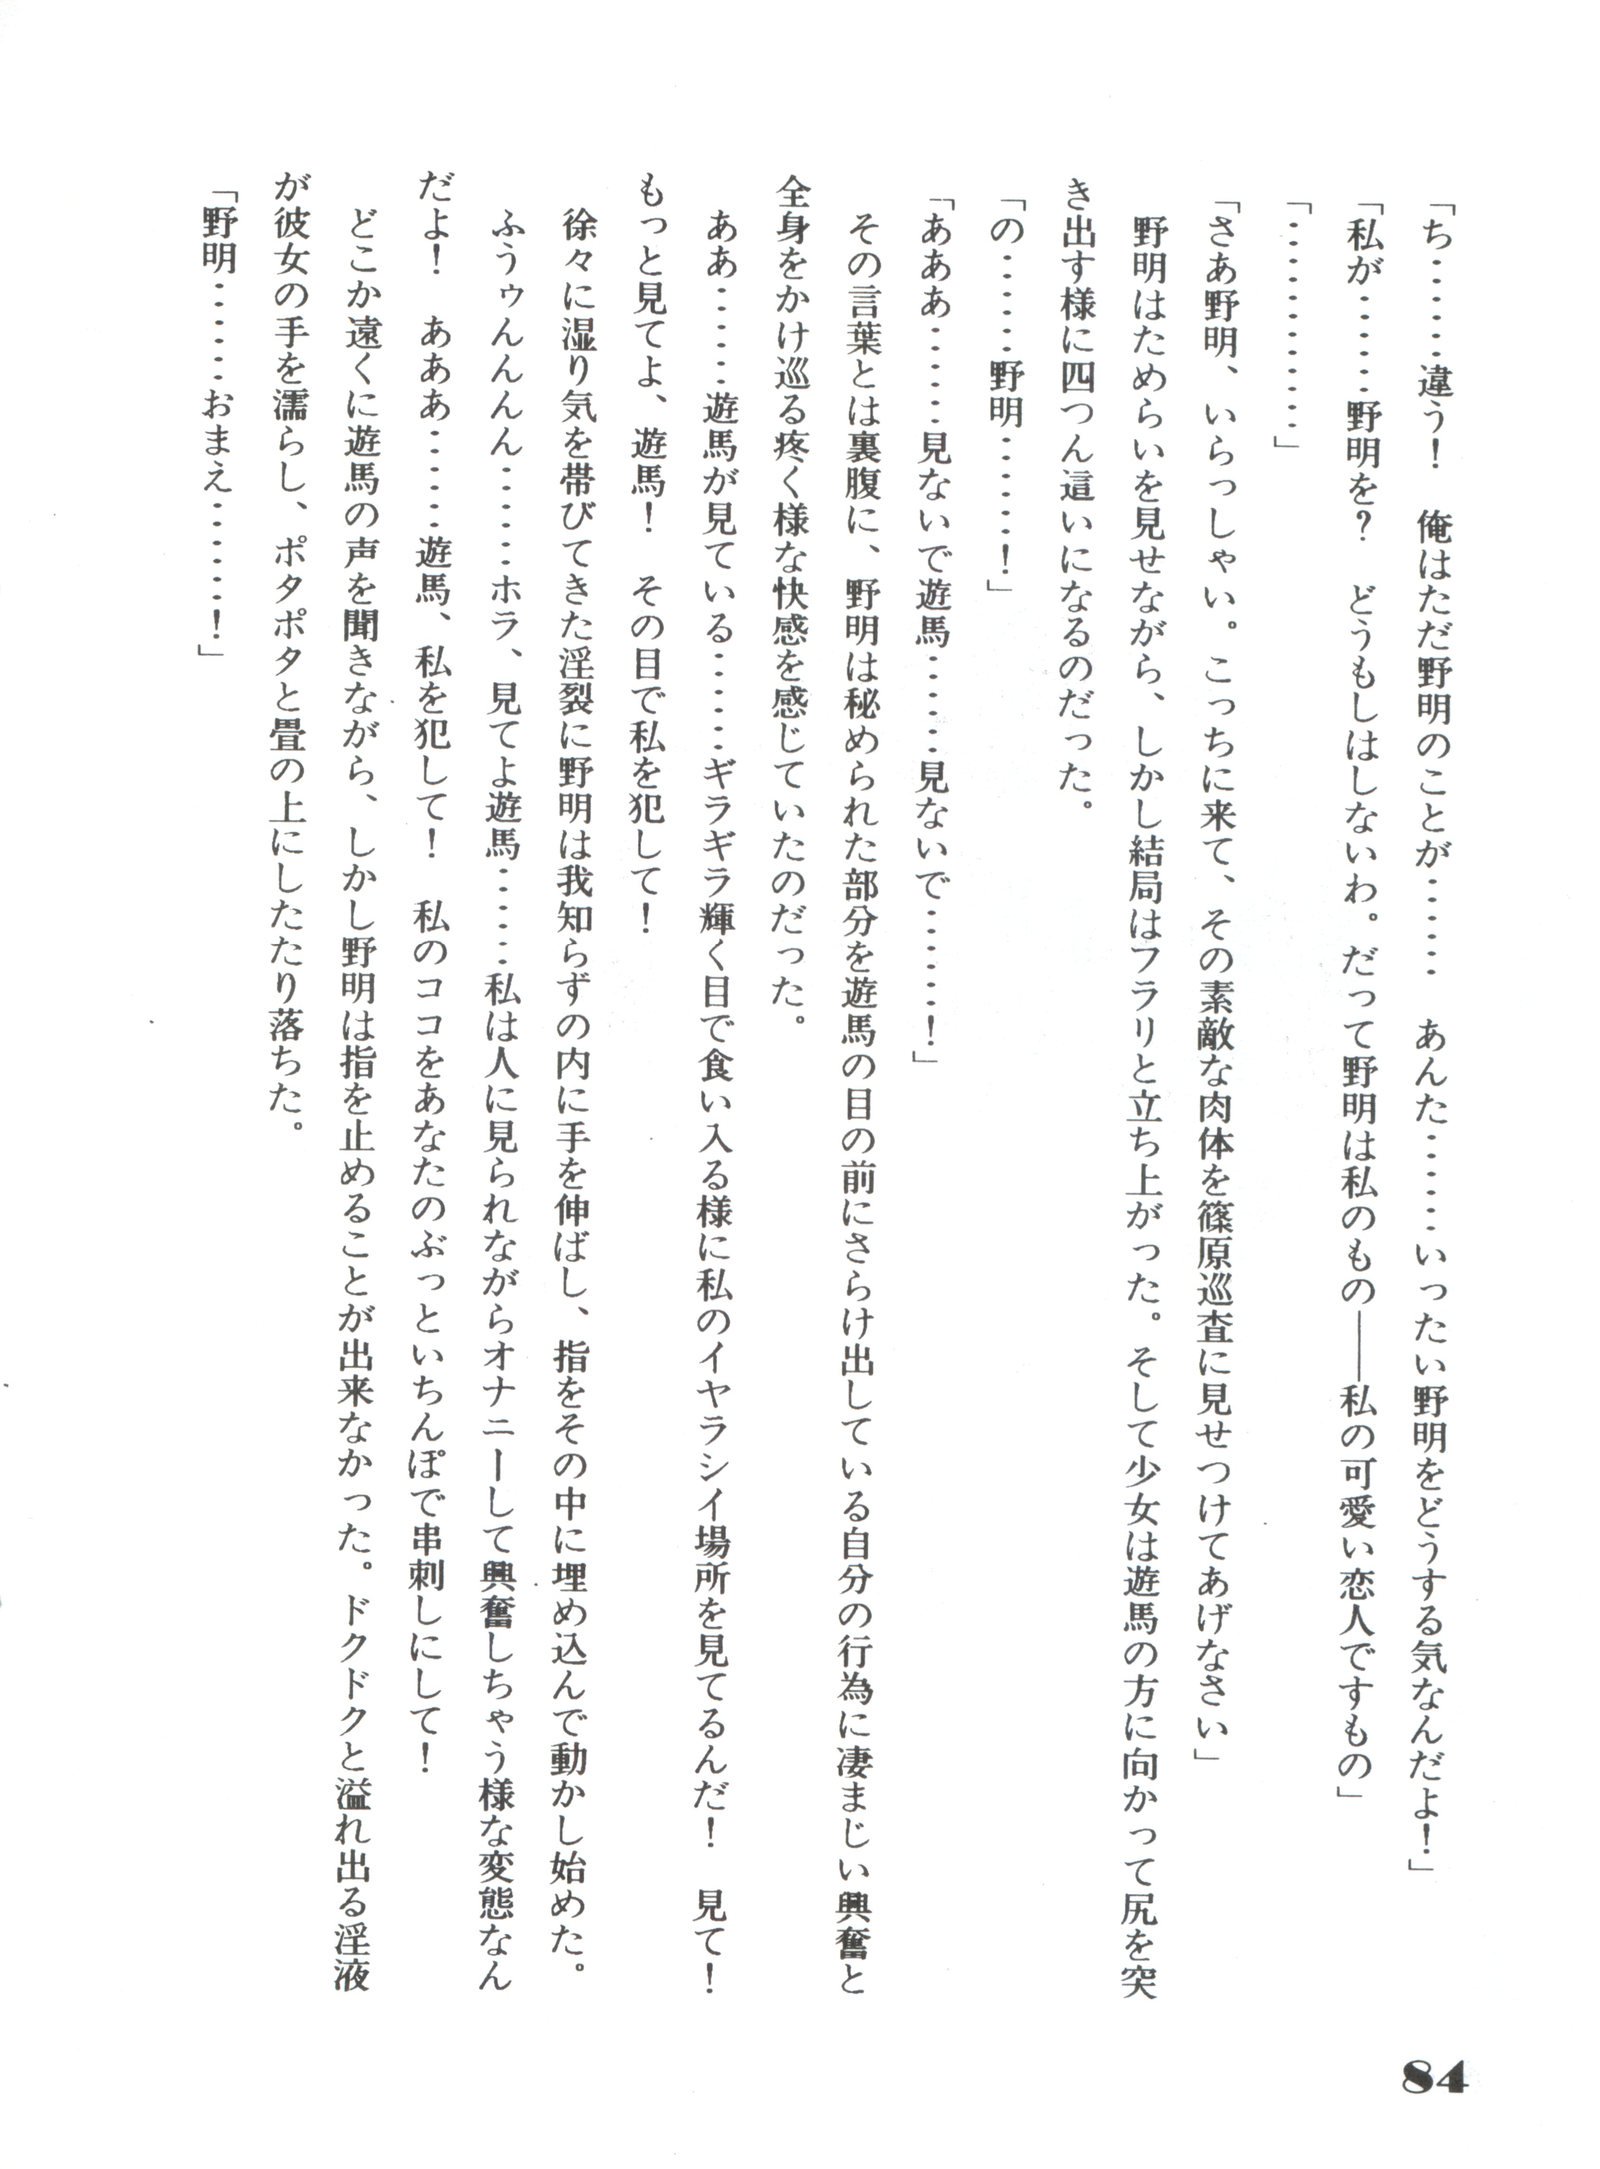 「ち……違う！　俺はただ野明のことが……　あんた……いったい野明をどうする気なんだよ！」
「私が……野明を？　どうもしはしないわ。だって野明は私のもの――私の可愛い恋人ですもの」
「…………」
「さあ野明、いらっしゃい。こっちに来て、その素敵な肉体を篠原巡査に見せつけてあげなさい」
　野明はためらいを見せながら、しかし結局はフラリと立ち上がった。そして少女は遊馬の方に向かって尻を突
き出す様に四つん這いになるのだった。
「の……野明……！」
「あああ……見ないで遊馬……見ないで……！」
　その言葉とは裏腹に、野明は秘められた部分を遊馬の目の前にさらけ出している自分の行為に凄まじい興奮と
全身をかけ巡る疼く様な快感を感じていたのだった。
　ああ……遊馬が見ている……ギラギラ輝く目で食い入る様に私のイヤラシイ場所を見てるんだ！　見て！
もっと見てよ、遊馬！　その目で私を犯して！
　徐々に湿り気を帯びてきた淫裂に野明は我知らずの内に手を伸ばし、指をその中に埋め込んで動かし始めた。
　ふうゥんんんん……ホラ、見てよ遊馬……私は人に見られながらオナニーして興奮しちゃう様な変態なん
だよ！　あああ……遊馬、私を犯して！　私のココをあなたのぶっといちんぽで串刺しにして！
　どこか遠くに遊馬の声を聞きながら、しかし野明は指を止めることが出来なかった。ドクドクと溢れ出る淫液
が彼女の手を濡らし、ポタポタと畳の上にしたたり落ちた。
「野明……おまえ……！」
84